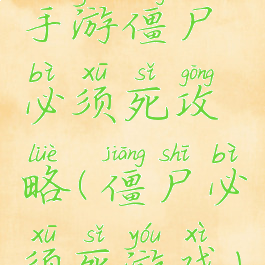 手游僵尸
bì xū sǐ gōng
必须死攻
lüè jiāng shī bì
略(僵尸必
xū sǐ yóu xì
须死游戏)